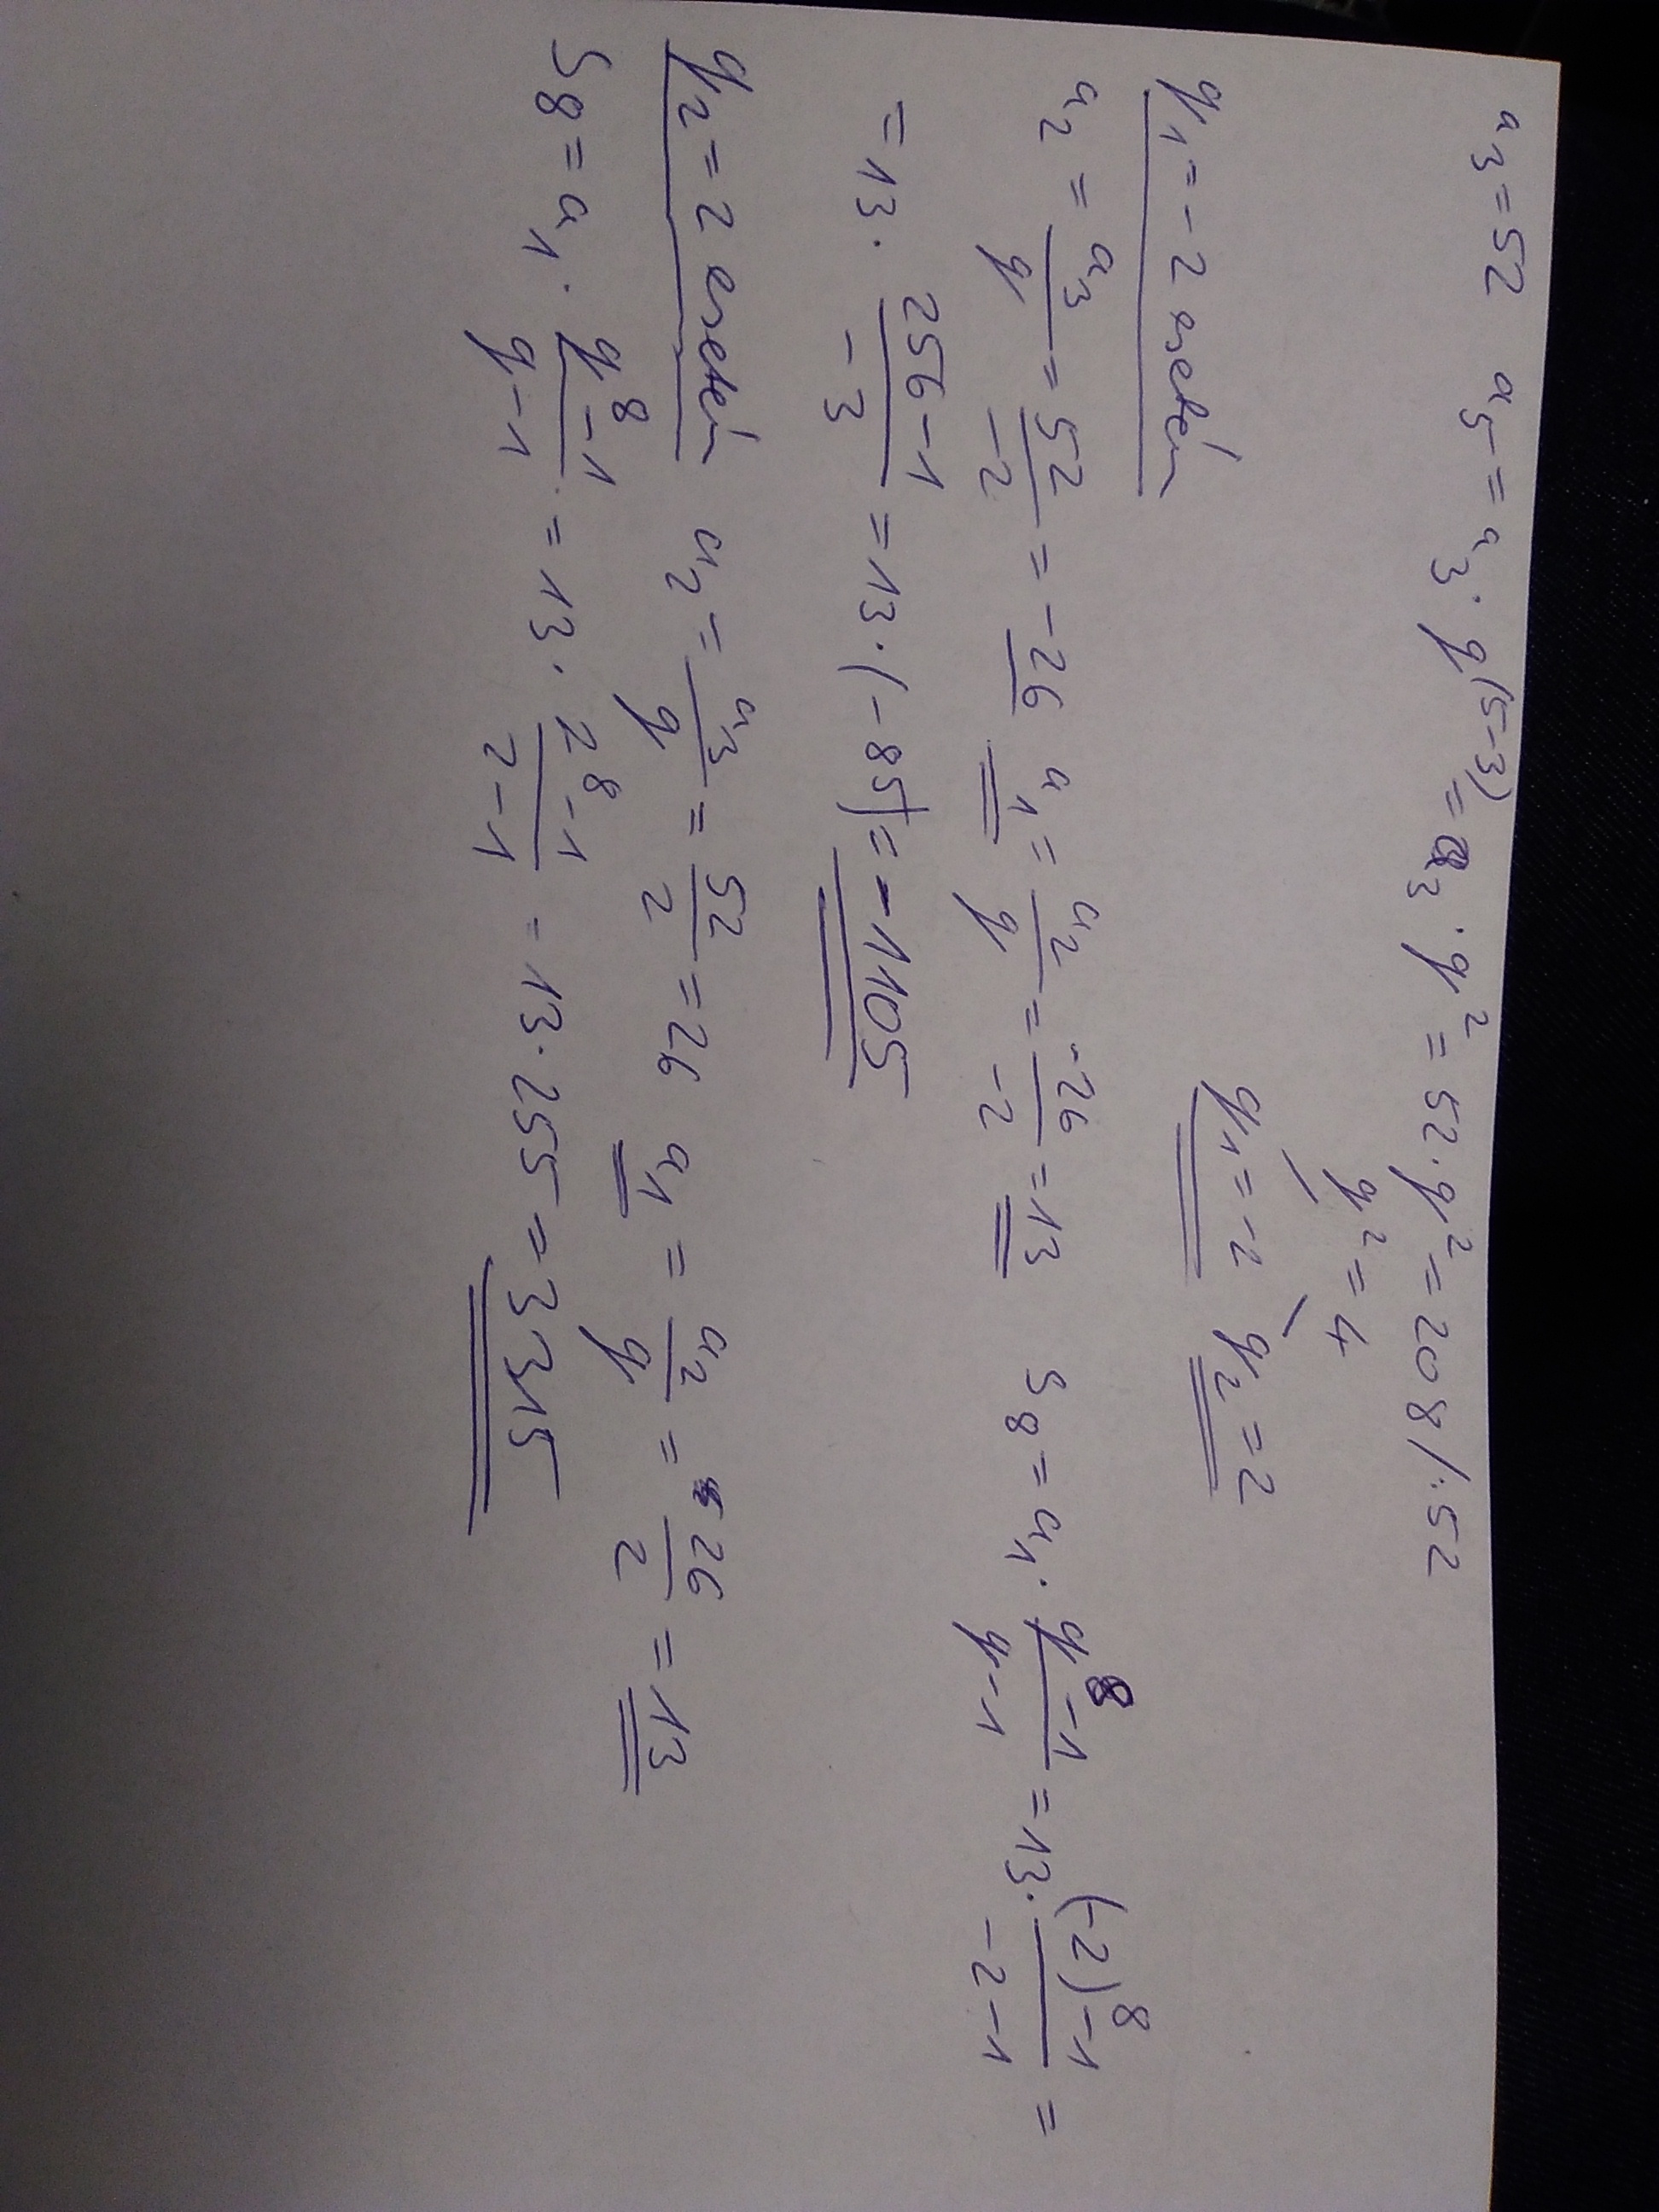 a₃ = 52 a₅ = a₃ · q⁽⁵⁻³⁾ = a₃ · q² = 52 · q² = 208 /:52
q² = 4
q₁ = -2 q₂ = 2
q₁ = -2 esetén
a₂ = a₃/q = 52/-2 = -26 a₁ = a₂/q = -26/-2 = 13 S₈ = a₁ · (q⁸-1)/(q-1) = 13 · ((-2)⁸-1)/(-2-1) =
= 13 · (256-1)/-3 = 13 · (-85) = -1105
q₂ = 2 esetén a₂ = a₃/q = 52/2 = 26 a₁ = a₂/q = 26/2 = 13
S₈ = a₁ · (q⁸-1)/(q-1) = 13 · (2⁸-1)/(2-1) = 13 · 255 = 3315